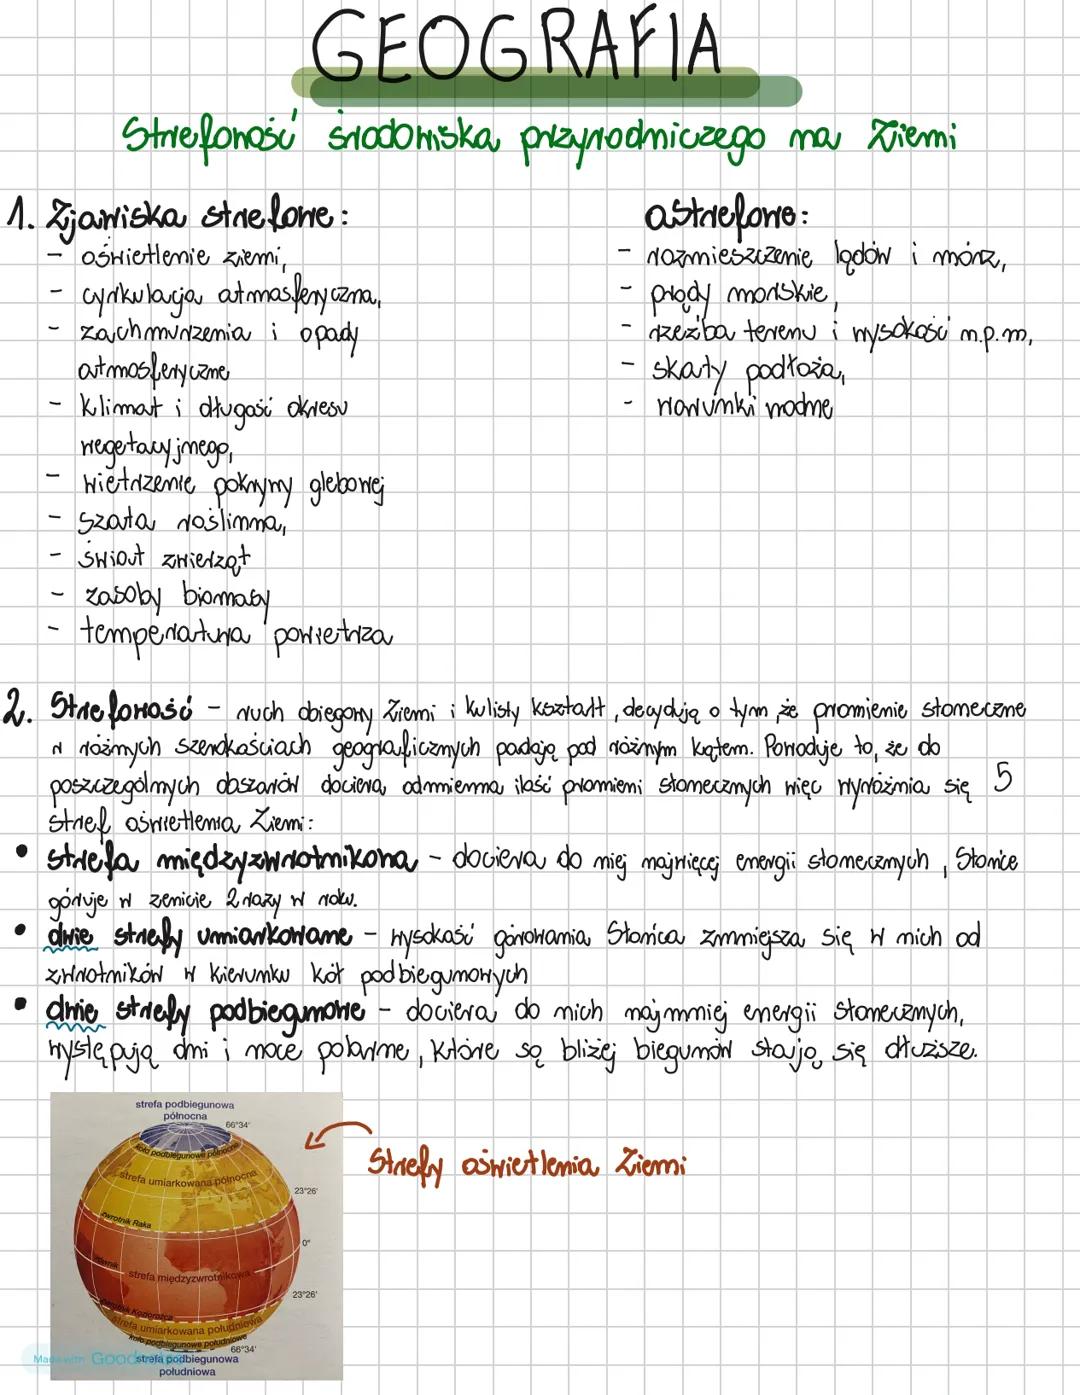 GEOGRAFIA
Strefowość środowiska przyrodniczego na Ziemi
1. Zjawiska strefowe:
- oświetlenie ziemi,
- cyrkulacja atmosferyczna,
- zachmurzenia i opady
atmosferyczne
- klimat i długość okresu
wegetacyjnego,
- wietrzenie pokrywy glebowej
- szata roślinna,
- świat zwierząt
- zasoby biomasy
- temperatura powietrza
astrefowe:
- rozmieszczenie lądów i mórz,
- prądy morskie,
- rzeźba terenu i wysokość n.p.m,
- skały podłoża,
- warunki wodne
2. Strefowość - ruch obiegowy Ziemi i kulisty kształt, decydują o tym, że promienie słoneczne
w różnych szerokościach geograficznych padają pod różnym kątem. Powoduje to, że do
poszczególnych obszarów dociera odmienna ilość promieni słonecznych więc wyróżnia się 5
stref oświetlenia Ziemi:
• strefa międzyzwrotnikowa - dociera do niej najwięcej energii słonecznych, Słońce
góruje w zenicie 2 razy w roku.
• dwie strefy umiarkowane - wysokość górowania Słońca zmniejsza się w nich od
zwrotników w kierunku kół podbiegunowych
• dwie strefy podbiegunowe - dociera do nich najmniej energii słonecznych,
występują dni i noce polarne, które są bliżej biegunów stają się dłuższe.
strefa podbiegunowa
północna
66°34'
koło podbiegunowe północne
strefa umiarkowana północna
23°26'
zwrotnik Raka
0°
równik
strefa międzyzwrotnikowa
23°26'
zwrotnik Koziorożca
strefa umiarkowana południowa
koło podbiegunowe południowe
66°34'
strefa podbiegunowa
południowa
Strefy oświetlenia Ziemi
Made with Goodnotes